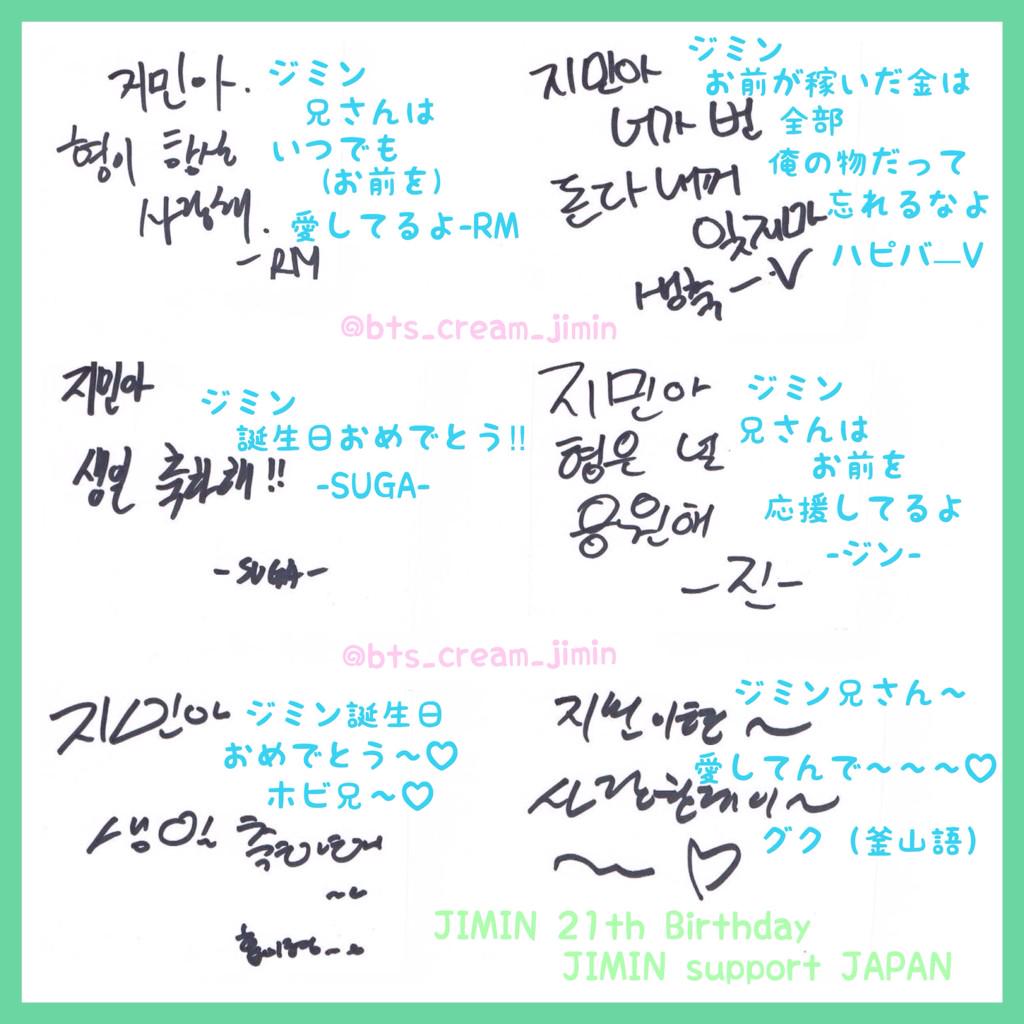 지민아.
형이 항상
사랑해.
-RM
ジミン
兄さんは
いつでも
(お前を)
愛してるよ-RM
지민아
너가 번
돈 다 내꺼
잊지마
생축 -V
ジミン
お前が稼いだ金は
全部
俺の物だって
忘れるなよ
ハピバ—V
@bts_cream_jimin
지민아
생일 축하해!!
-SUGA-
ジミン
誕生日おめでとう!!
-SUGA-
지민아
형은 널
응원해
-진-
ジミン
兄さんは
お前を
応援してるよ
-ジン-
@bts_cream_jimin
지민아
생일 축하한다
~~
ジミン誕生日
おめでとう～♡
ホビ兄～♡
지민이형~
사랑한데이~
~♡
ジミン兄さん～
愛してんで～～～♡
グク (釜山語)
JIMIN 21th Birthday
JIMIN support JAPAN